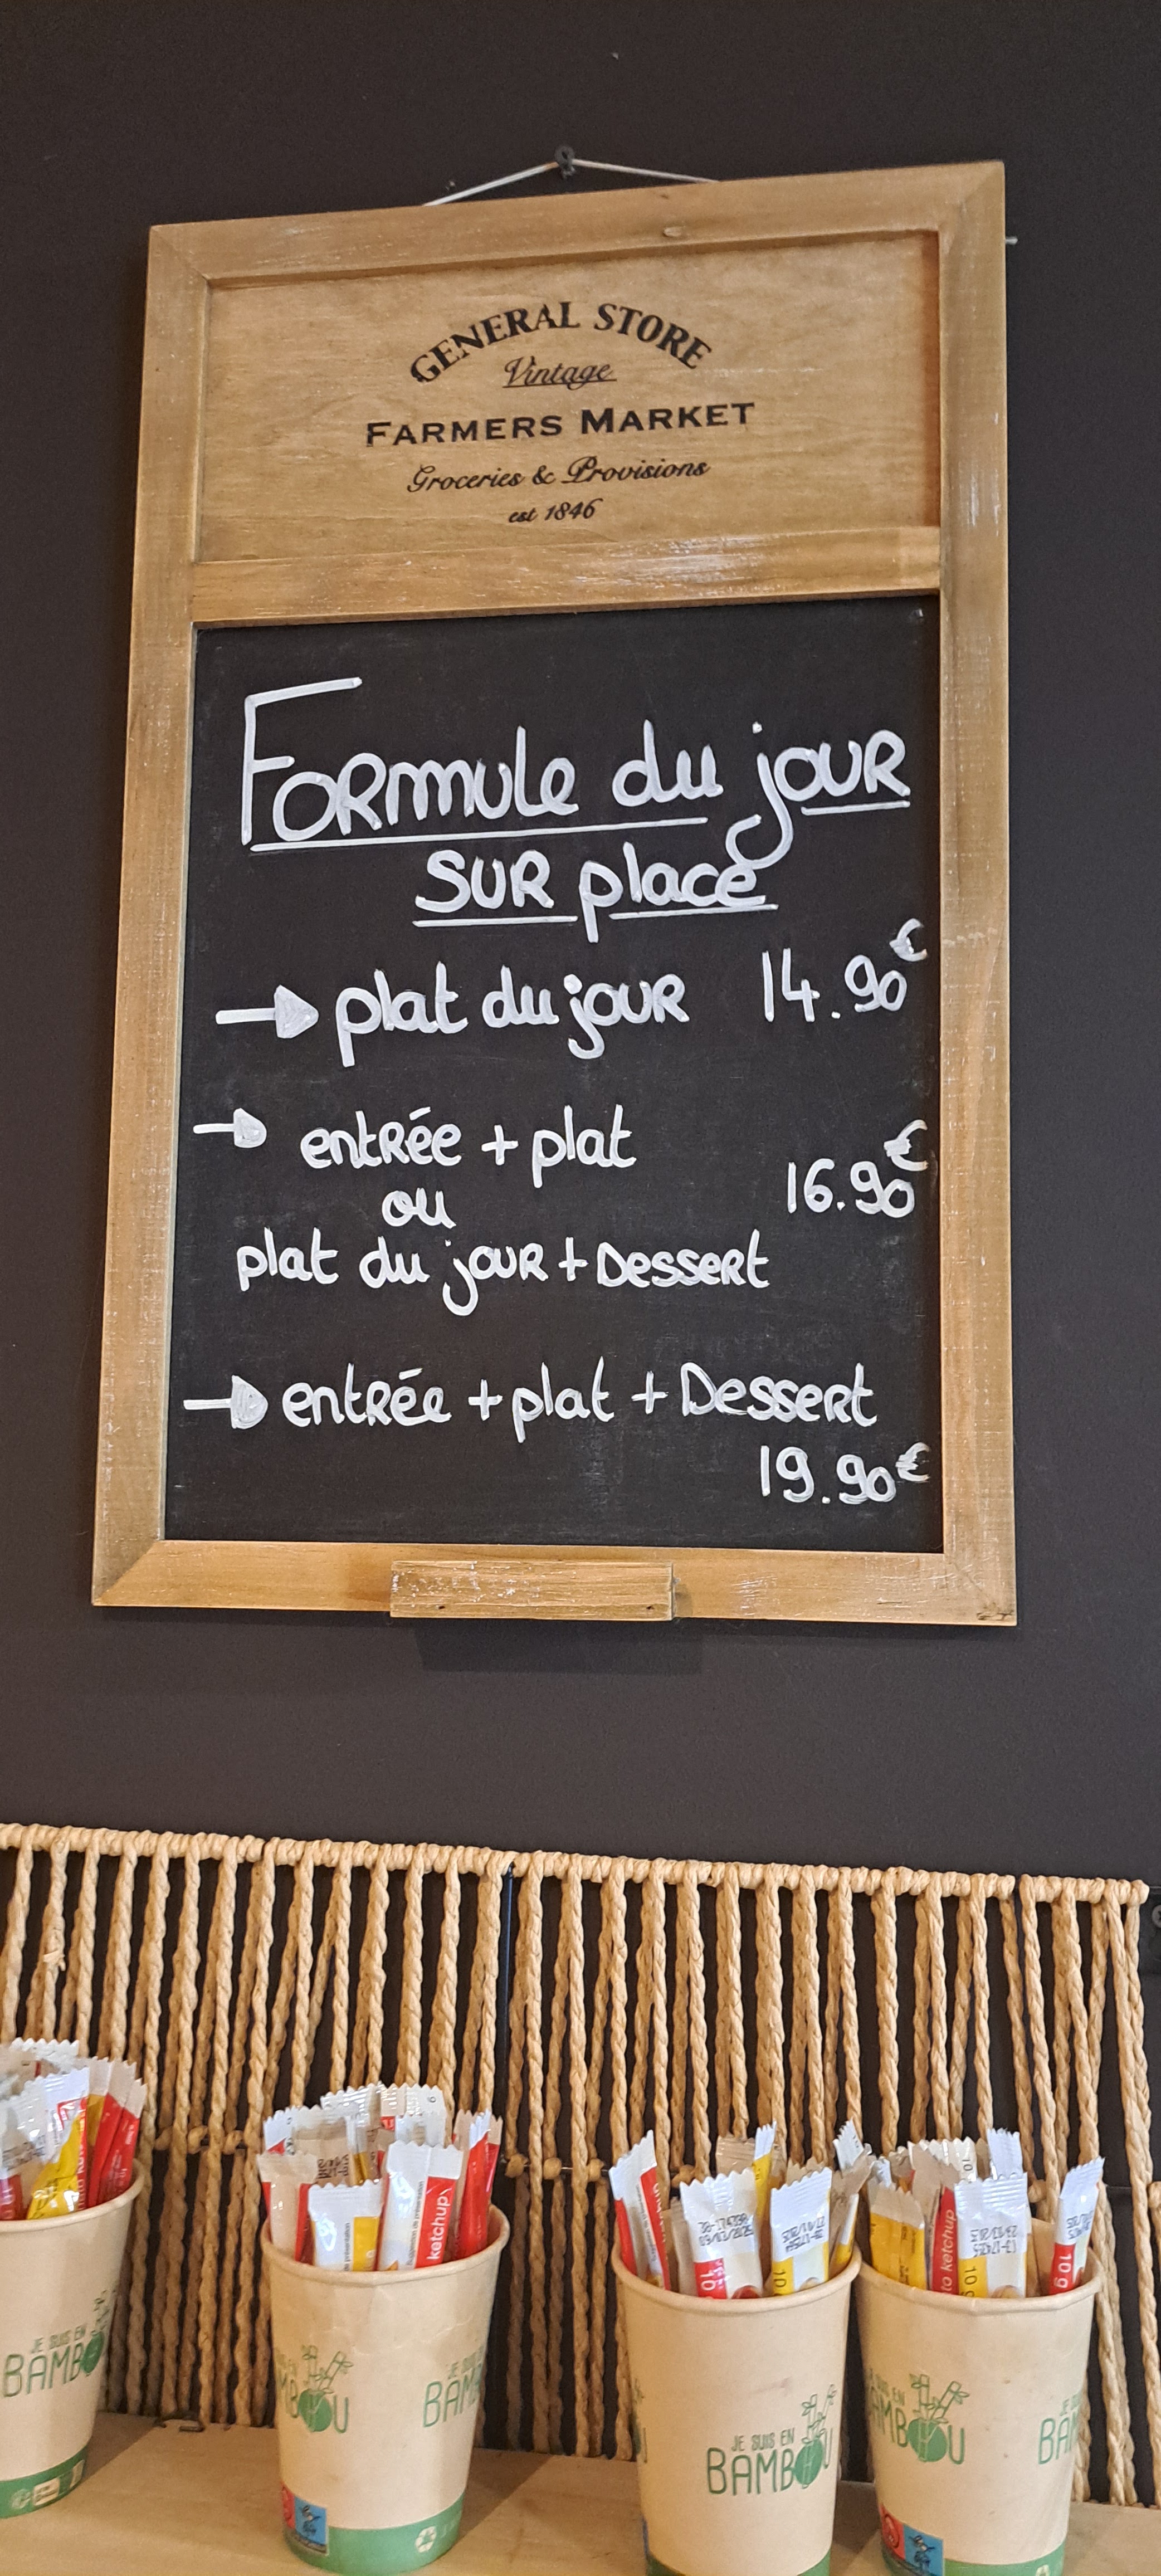 GENERAL STORE
Vintage
FARMERS MARKET
Groceries & Provisions
est 1846
Formule du jour
sur place
plat du jour 14.90€
entrée + plat
16.90€
ou
plat du jour + Dessert
entrée + plat + Dessert
19.90€
ketchup
10
10
ketchup
10 g
10 g
JE SUIS EN
BAMBOU
JE SUIS EN
BAMBOU